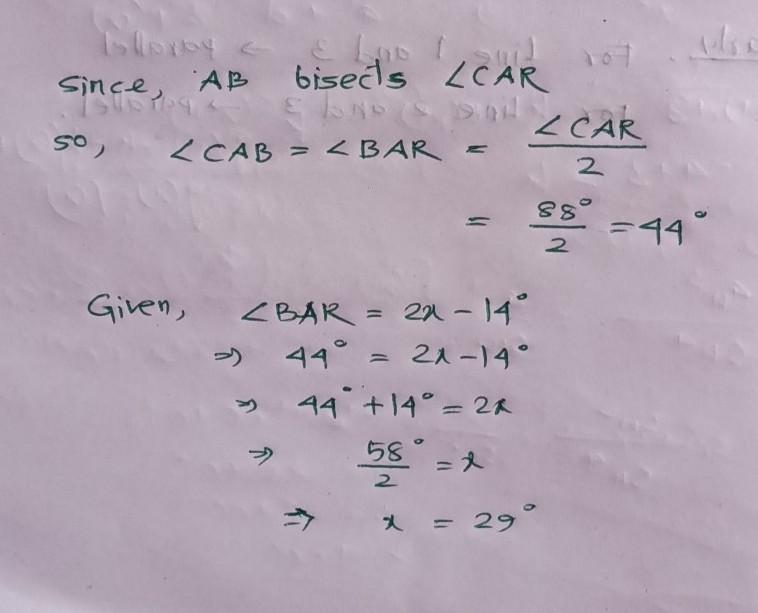 since, AB bisects ∠CAR
so, ∠CAB = ∠BAR = ∠CAR/2
= 88°/2 = 44°
Given, ∠BAR = 2x - 14°
⇒ 44° = 2x - 14°
⇒ 44° + 14° = 2x
⇒ 58°/2 = x
⇒ x = 29°